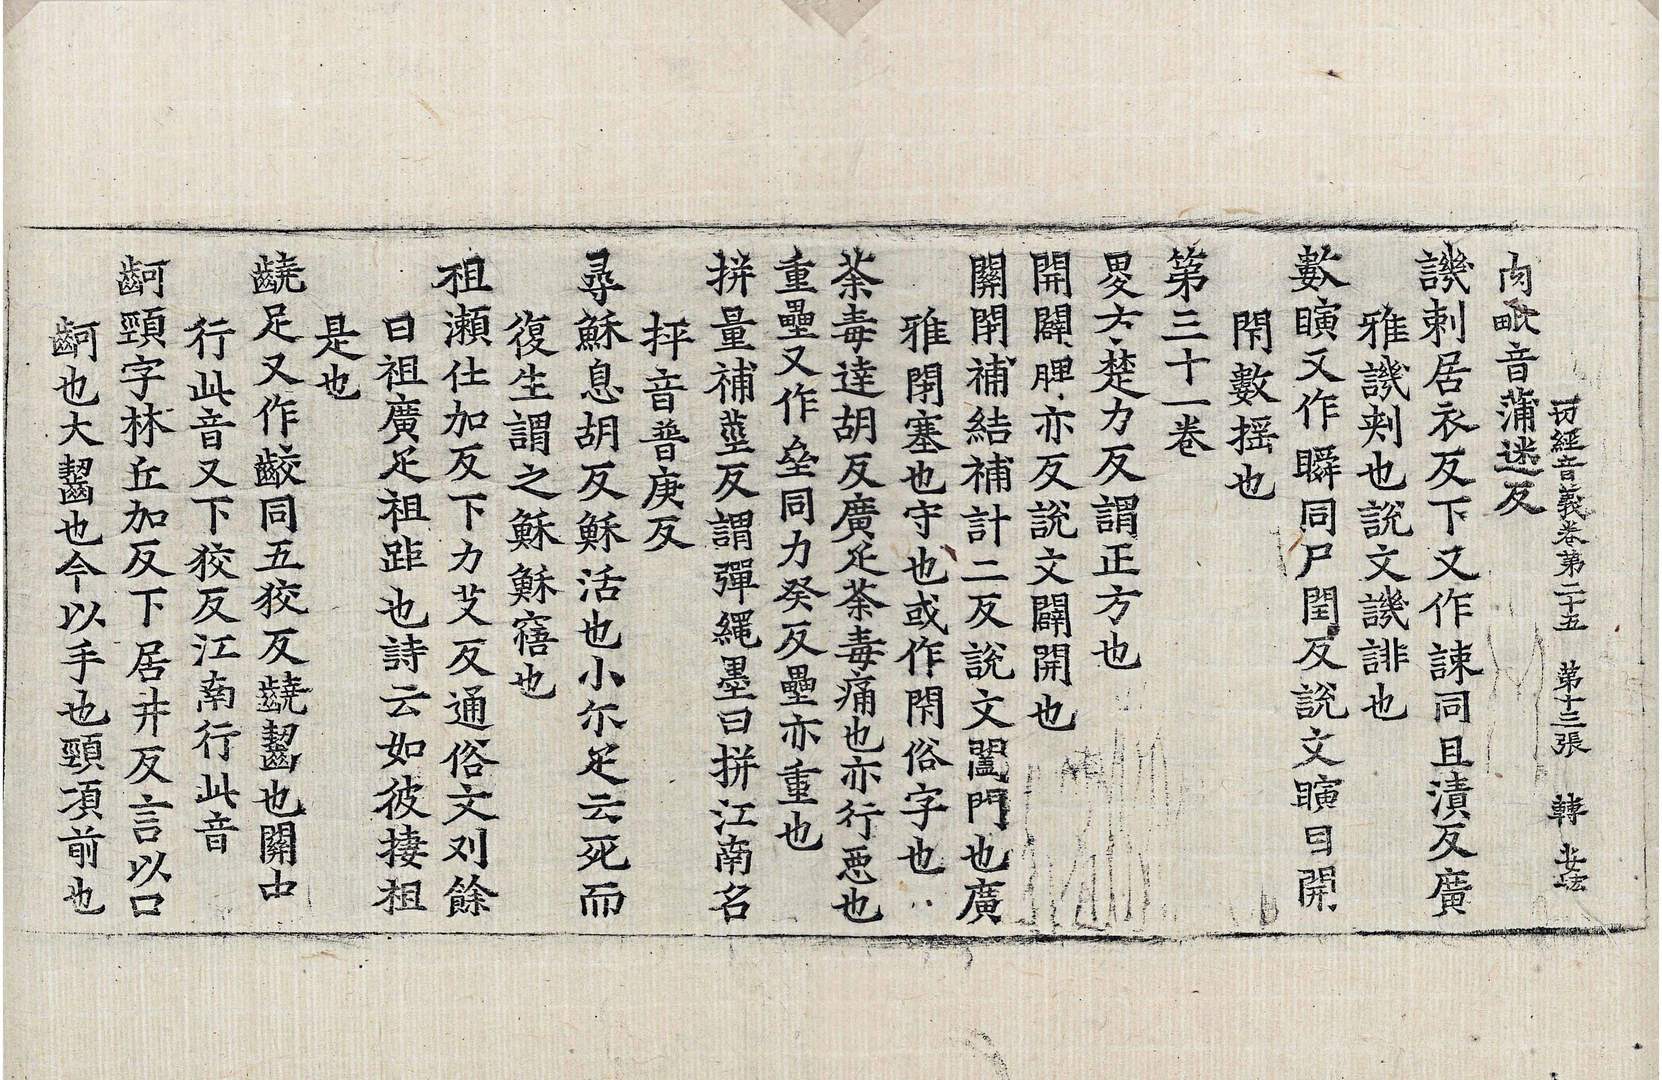 切經音義卷第二十五　第十三張　韓　
肉毗音蒲迷反
譏刺居衣反下又作諫同且漬反廣
雅譏刾也說文譏誹也
數瞚又作瞬同尸閏反說文瞚目開
閇數搖也
第三十一卷
畟方楚力反謂正方也
開闢脾亦反說文闢開也
關閉補結補計二反說文闔門也廣
雅閉塞也守也或作閇俗字也
荼毒達胡反廣疋荼毒痛也亦行惡也
重壘又作垒同力癸反壘亦重也
拼量補莖反謂彈繩墨曰拼江南名
抨音普庚反
尋穌息胡反穌活也小尔疋云死而
復生謂之穌穌寤也
柤瀨仕加反下力艾反通俗文刈餘
曰柤廣疋柤距也詩云如彼棲柤
是也
齩足又作齩同五狡反齩齧也關中
行此音又下狡反江南行此音
齖頸字林丘加反下居井反言以口
齖也大齧也今以手也頸項前也